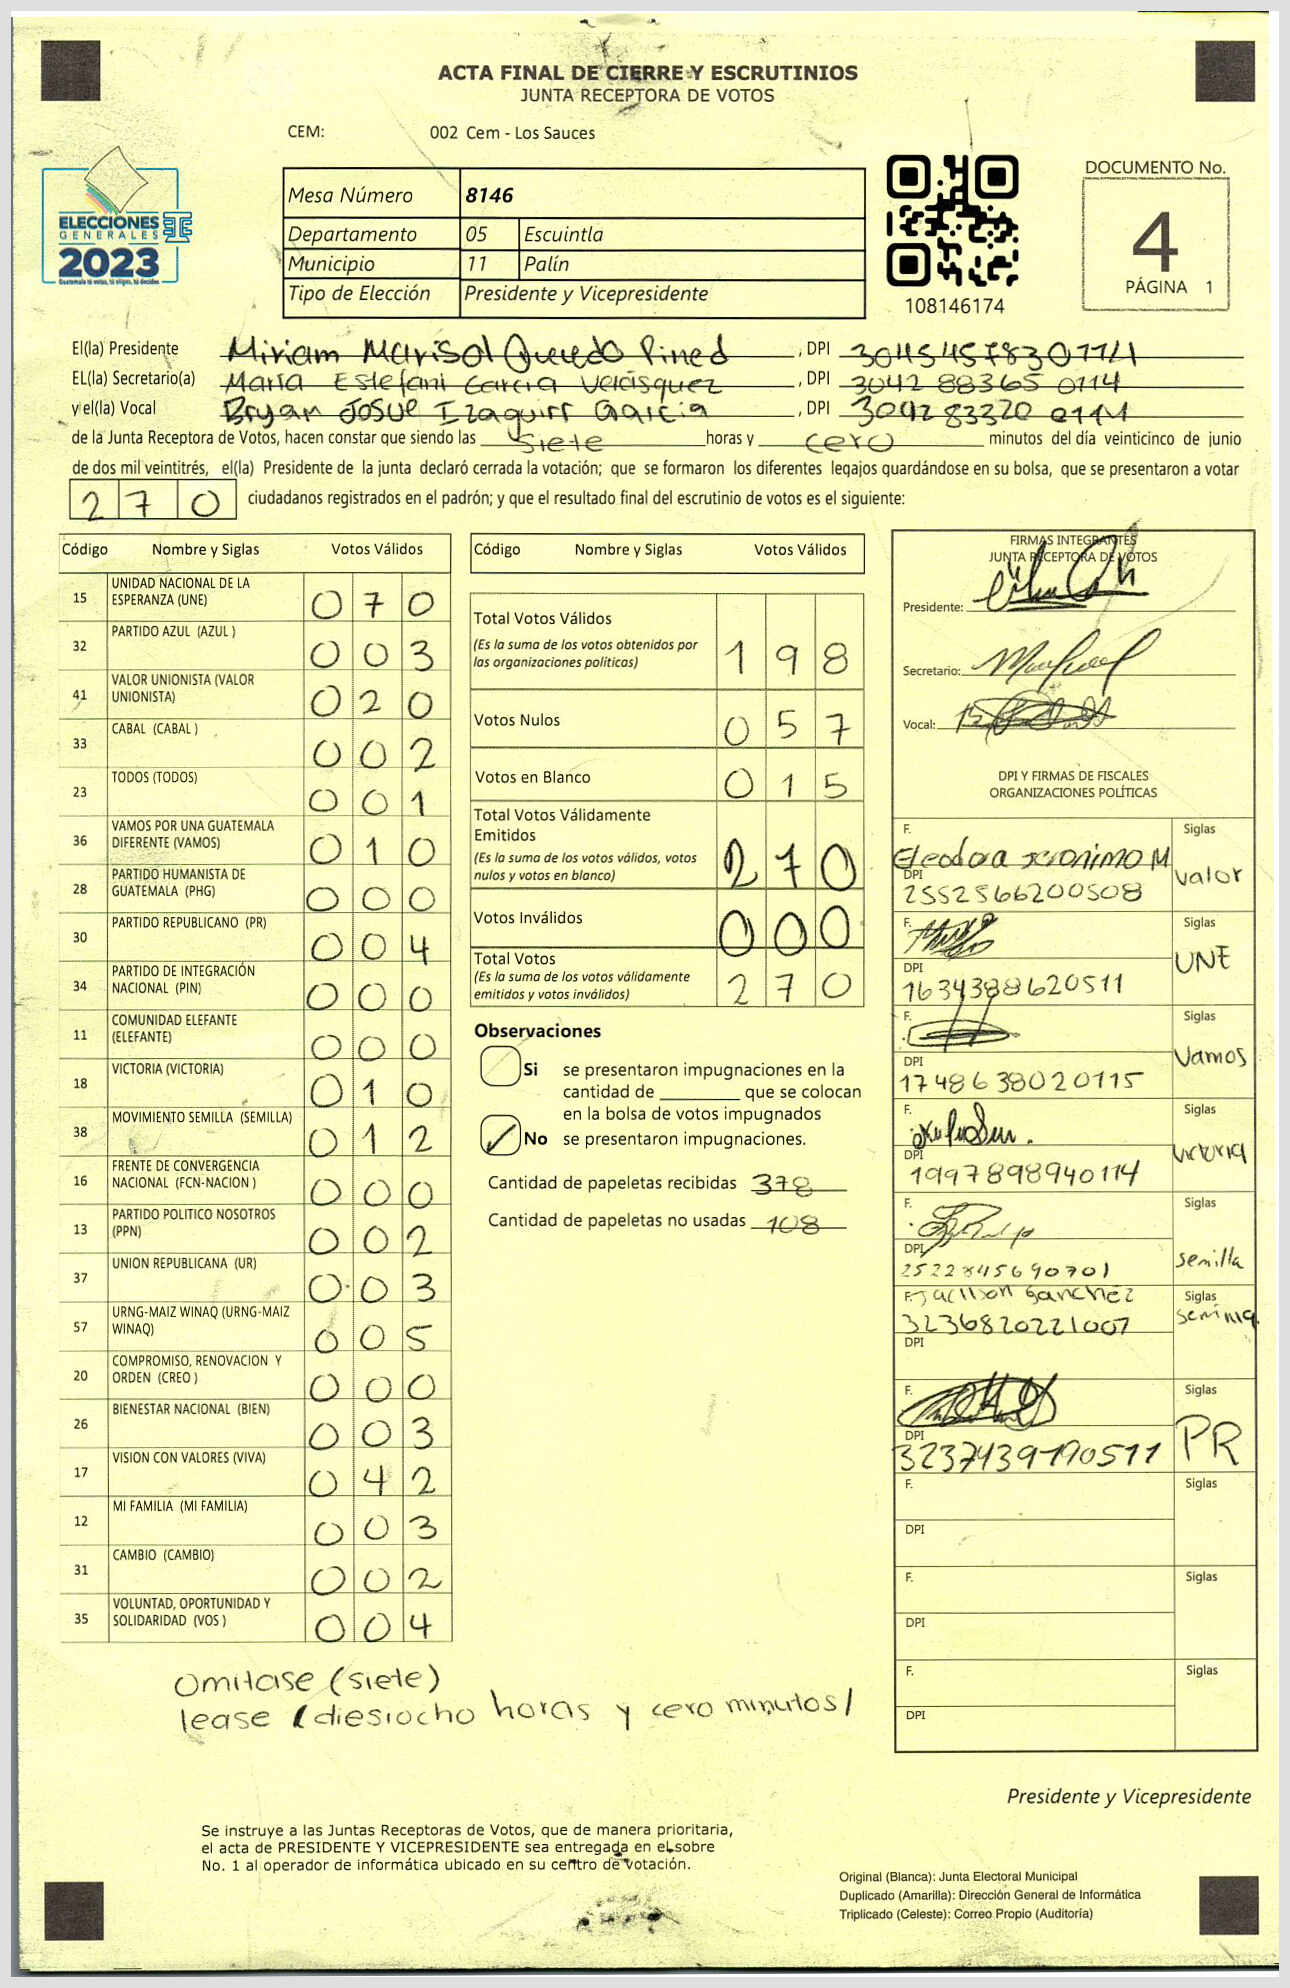 ACTA FINAL DE CIERRE Y ESCRUTINIOS
JUNTA RECEPTORA DE VOTOS
CEM: 002 Cem - Los Sauces
ELECCIONES
GENERALES
2023
Guatemala tú votas, tú eliges, tú decides
TSE
Mesa Número 8146
Departamento 05 Escuintla
Municipio 11 Palín
Tipo de Elección Presidente y Vicepresidente
108146174
DOCUMENTO No.
4
PÁGINA 1
El(la) Presidente Miriam Marisol Quevedo Pined , DPI
EL(la) Secretario(a) María Estefani Garcia Velásquez , DPI 3042 88365 0114
y el(la) Vocal Bryan Josue Izaguirr Garcia , DPI 3042 83320 0114
de la Junta Receptora de Votos, hacen constar que siendo las siete horas y cero minutos del día veinticinco de junio
de dos mil veintitrés, el(la) Presidente de la junta declaró cerrada la votación; que se formaron los diferentes legajos guardándose en su bolsa, que se presentaron a votar
270 ciudadanos registrados en el padrón; y que el resultado final del escrutinio de votos es el siguiente:
Código Nombre y Siglas Votos Válidos
15 UNIDAD NACIONAL DE LA
ESPERANZA (UNE) 070
32 PARTIDO AZUL (AZUL ) 003
41 VALOR UNIONISTA (VALOR
UNIONISTA) 020
33 CABAL (CABAL ) 002
23 TODOS (TODOS) 001
36 VAMOS POR UNA GUATEMALA
DIFERENTE (VAMOS) 010
28 PARTIDO HUMANISTA DE
GUATEMALA (PHG) 000
30 PARTIDO REPUBLICANO (PR) 004
34 PARTIDO DE INTEGRACIÓN
NACIONAL (PIN) 000
11 COMUNIDAD ELEFANTE
(ELEFANTE) 000
18 VICTORIA (VICTORIA) 010
38 MOVIMIENTO SEMILLA (SEMILLA) 012
16 FRENTE DE CONVERGENCIA
NACIONAL (FCN-NACION ) 000
13 PARTIDO POLITICO NOSOTROS
(PPN) 002
37 UNION REPUBLICANA (UR) 003
57 URNG-MAIZ WINAQ (URNG-MAIZ
WINAQ) 005
20 COMPROMISO, RENOVACION Y
ORDEN (CREO ) 000
26 BIENESTAR NACIONAL (BIEN) 003
17 VISION CON VALORES (VIVA) 042
12 MI FAMILIA (MI FAMILIA) 003
31 CAMBIO (CAMBIO) 002
35 VOLUNTAD, OPORTUNIDAD Y
SOLIDARIDAD (VOS ) 004
Código Nombre y Siglas Votos Válidos
Total Votos Válidos
(Es la suma de los votos obtenidos por
las organizaciones políticas) 198
Votos Nulos 057
Votos en Blanco 015
Total Votos Válidamente
Emitidos
(Es la suma de los votos válidos, votos
nulos y votos en blanco) 270
Votos Inválidos 000
Total Votos
(Es la suma de los votos válidamente
emitidos y votos inválidos) 270
Observaciones
Si se presentaron impugnaciones en la
cantidad de ________ que se colocan
en la bolsa de votos impugnados
No se presentaron impugnaciones.
Cantidad de papeletas recibidas 378
Cantidad de papeletas no usadas 108
FIRMAS INTEGRANTES
JUNTA RECEPTORA DE VOTOS
Presidente:
Secretario:
Vocal:
DPI Y FIRMAS DE FISCALES
ORGANIZACIONES POLÍTICAS
F. Eleodora Jeronimo M Siglas
DPI 2552566200508 valor
F. Siglas
DPI 1634388620511 UNE
F. Siglas
DPI 1748638020115 Vamos
F. Siglas
DPI 1997898940114 victoria
F. Siglas
DPI 2522845690701 semilla
F. Sanchéz Siglas
3236820221007
DPI
F. Siglas
DPI PR
F. Siglas
DPI
F. Siglas
DPI
F. Siglas
DPI
omitase (siete)
lease (diesiocho horas y cero minutos)
Presidente y Vicepresidente
Se instruye a las Juntas Receptoras de Votos, que de manera prioritaria,
el acta de PRESIDENTE Y VICEPRESIDENTE sea entregada en el sobre
No. 1 al operador de informática ubicado en su centro de votación.
Original (Blanca): Junta Electoral Municipal
Duplicado (Amarilla): Dirección General de Informática
Triplicado (Celeste): Correo Propio (Auditoría)